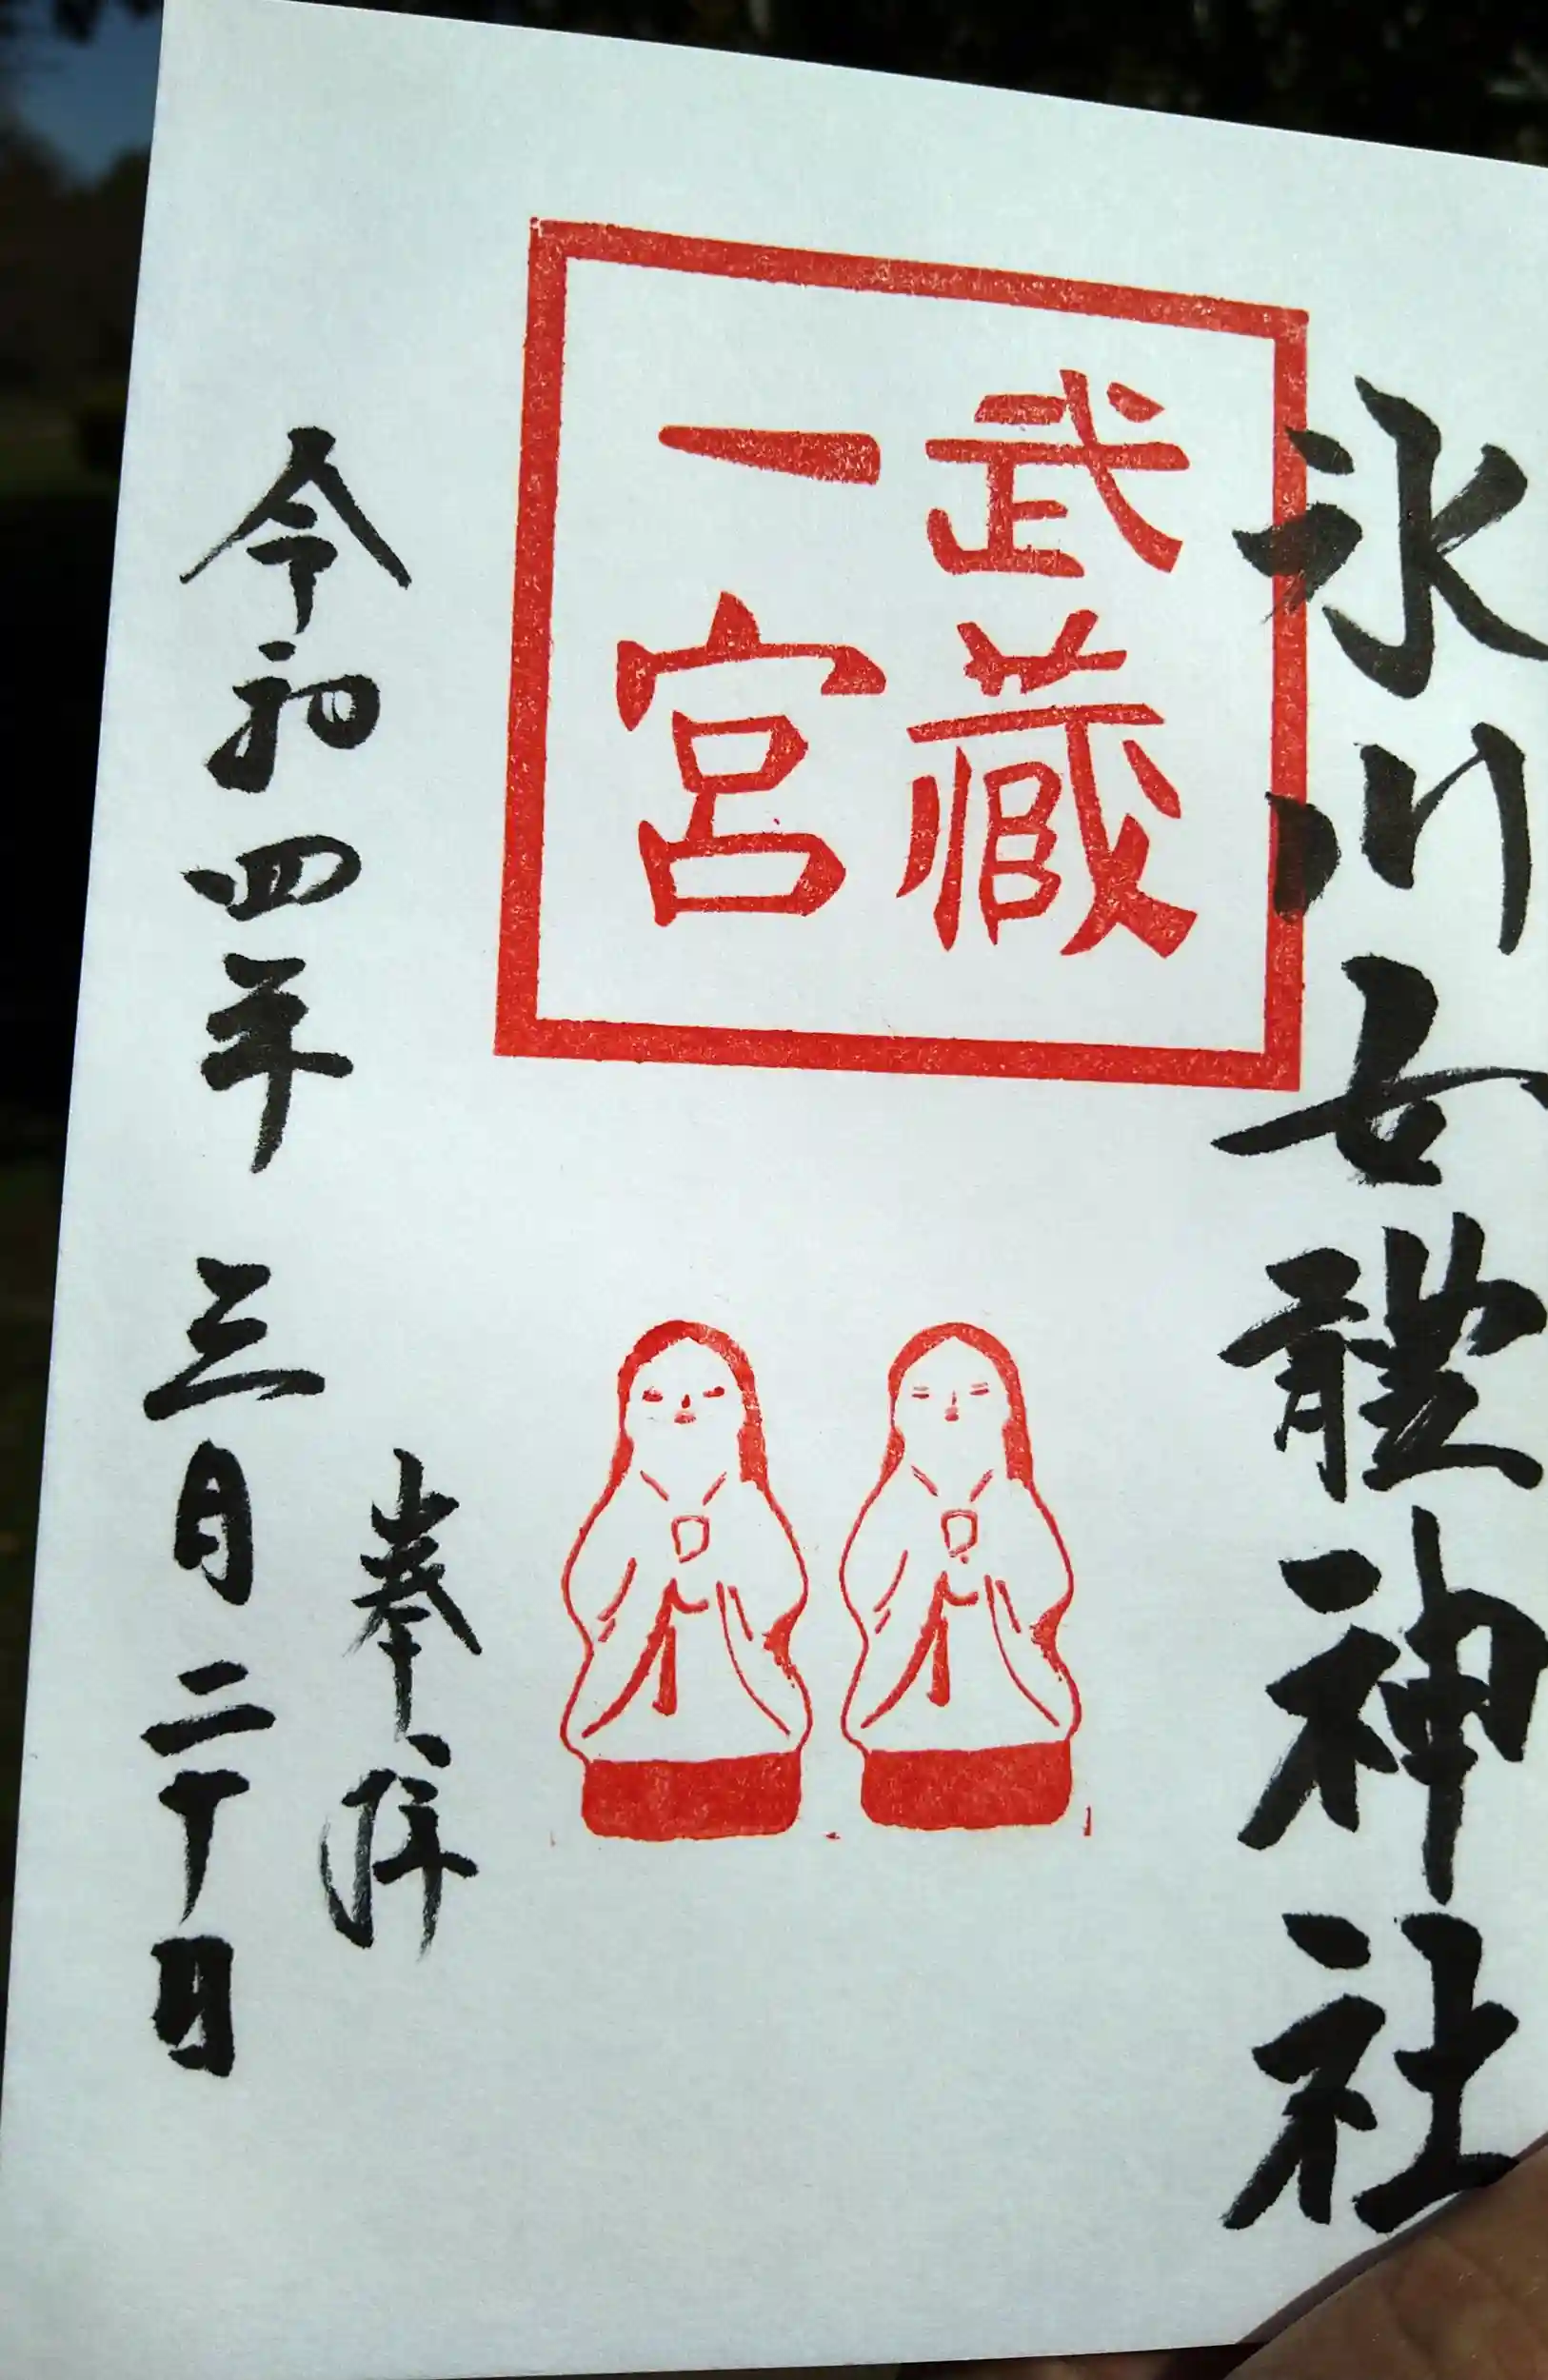 氷川女體神社
武藏
一宮
奉拝
令和四年 三月二十日